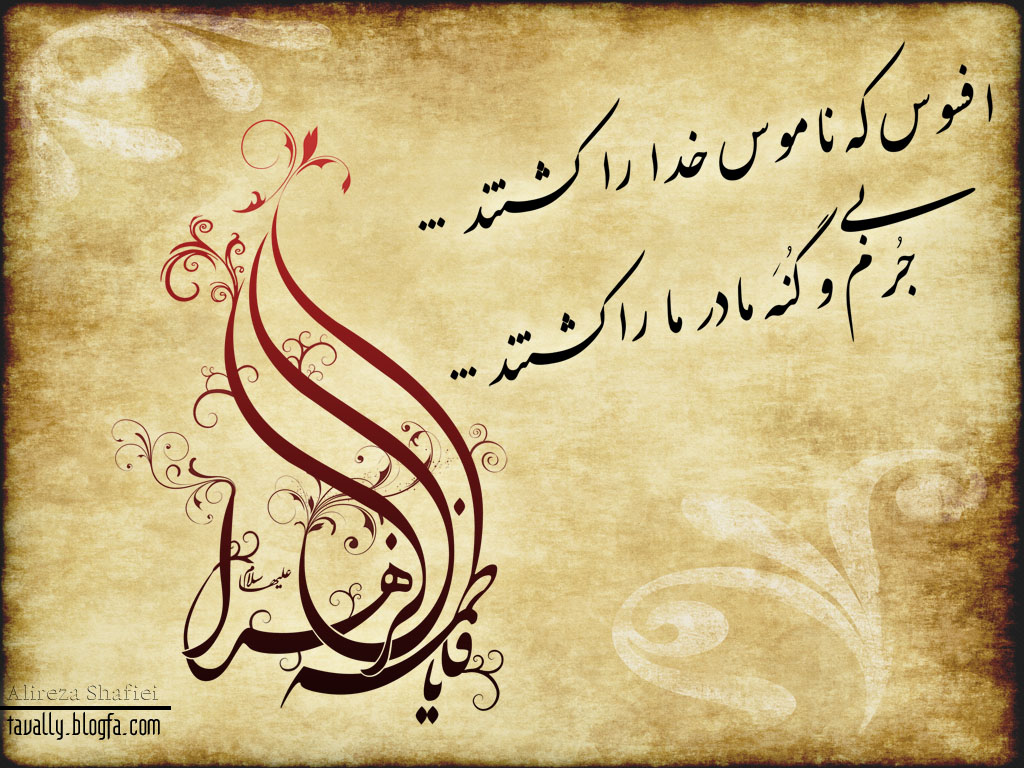 افسوس که ناموس خدا را کشتند ...
بی جُرم و گُنَه مادر ما را کشتند ...
یا فاطمة الزهرا
علیها سلام
Alireza Shafiei
tavally.blogfa.com